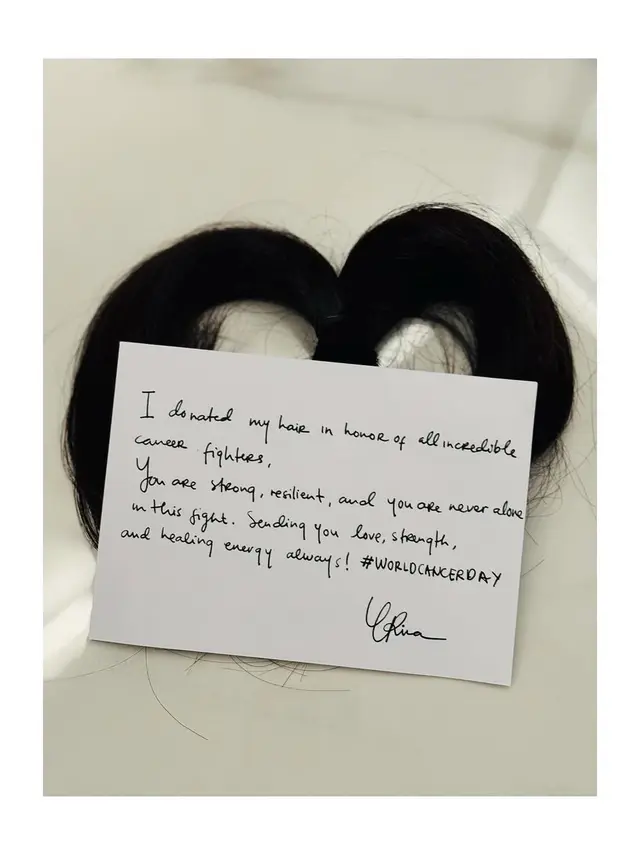 I donated my hair in honor of all incredible
cancer fighters,
You are strong, resilient, and you are never alone
in this fight. Sending you love, strength,
and healing energy always! #WORLDCANCERDAY